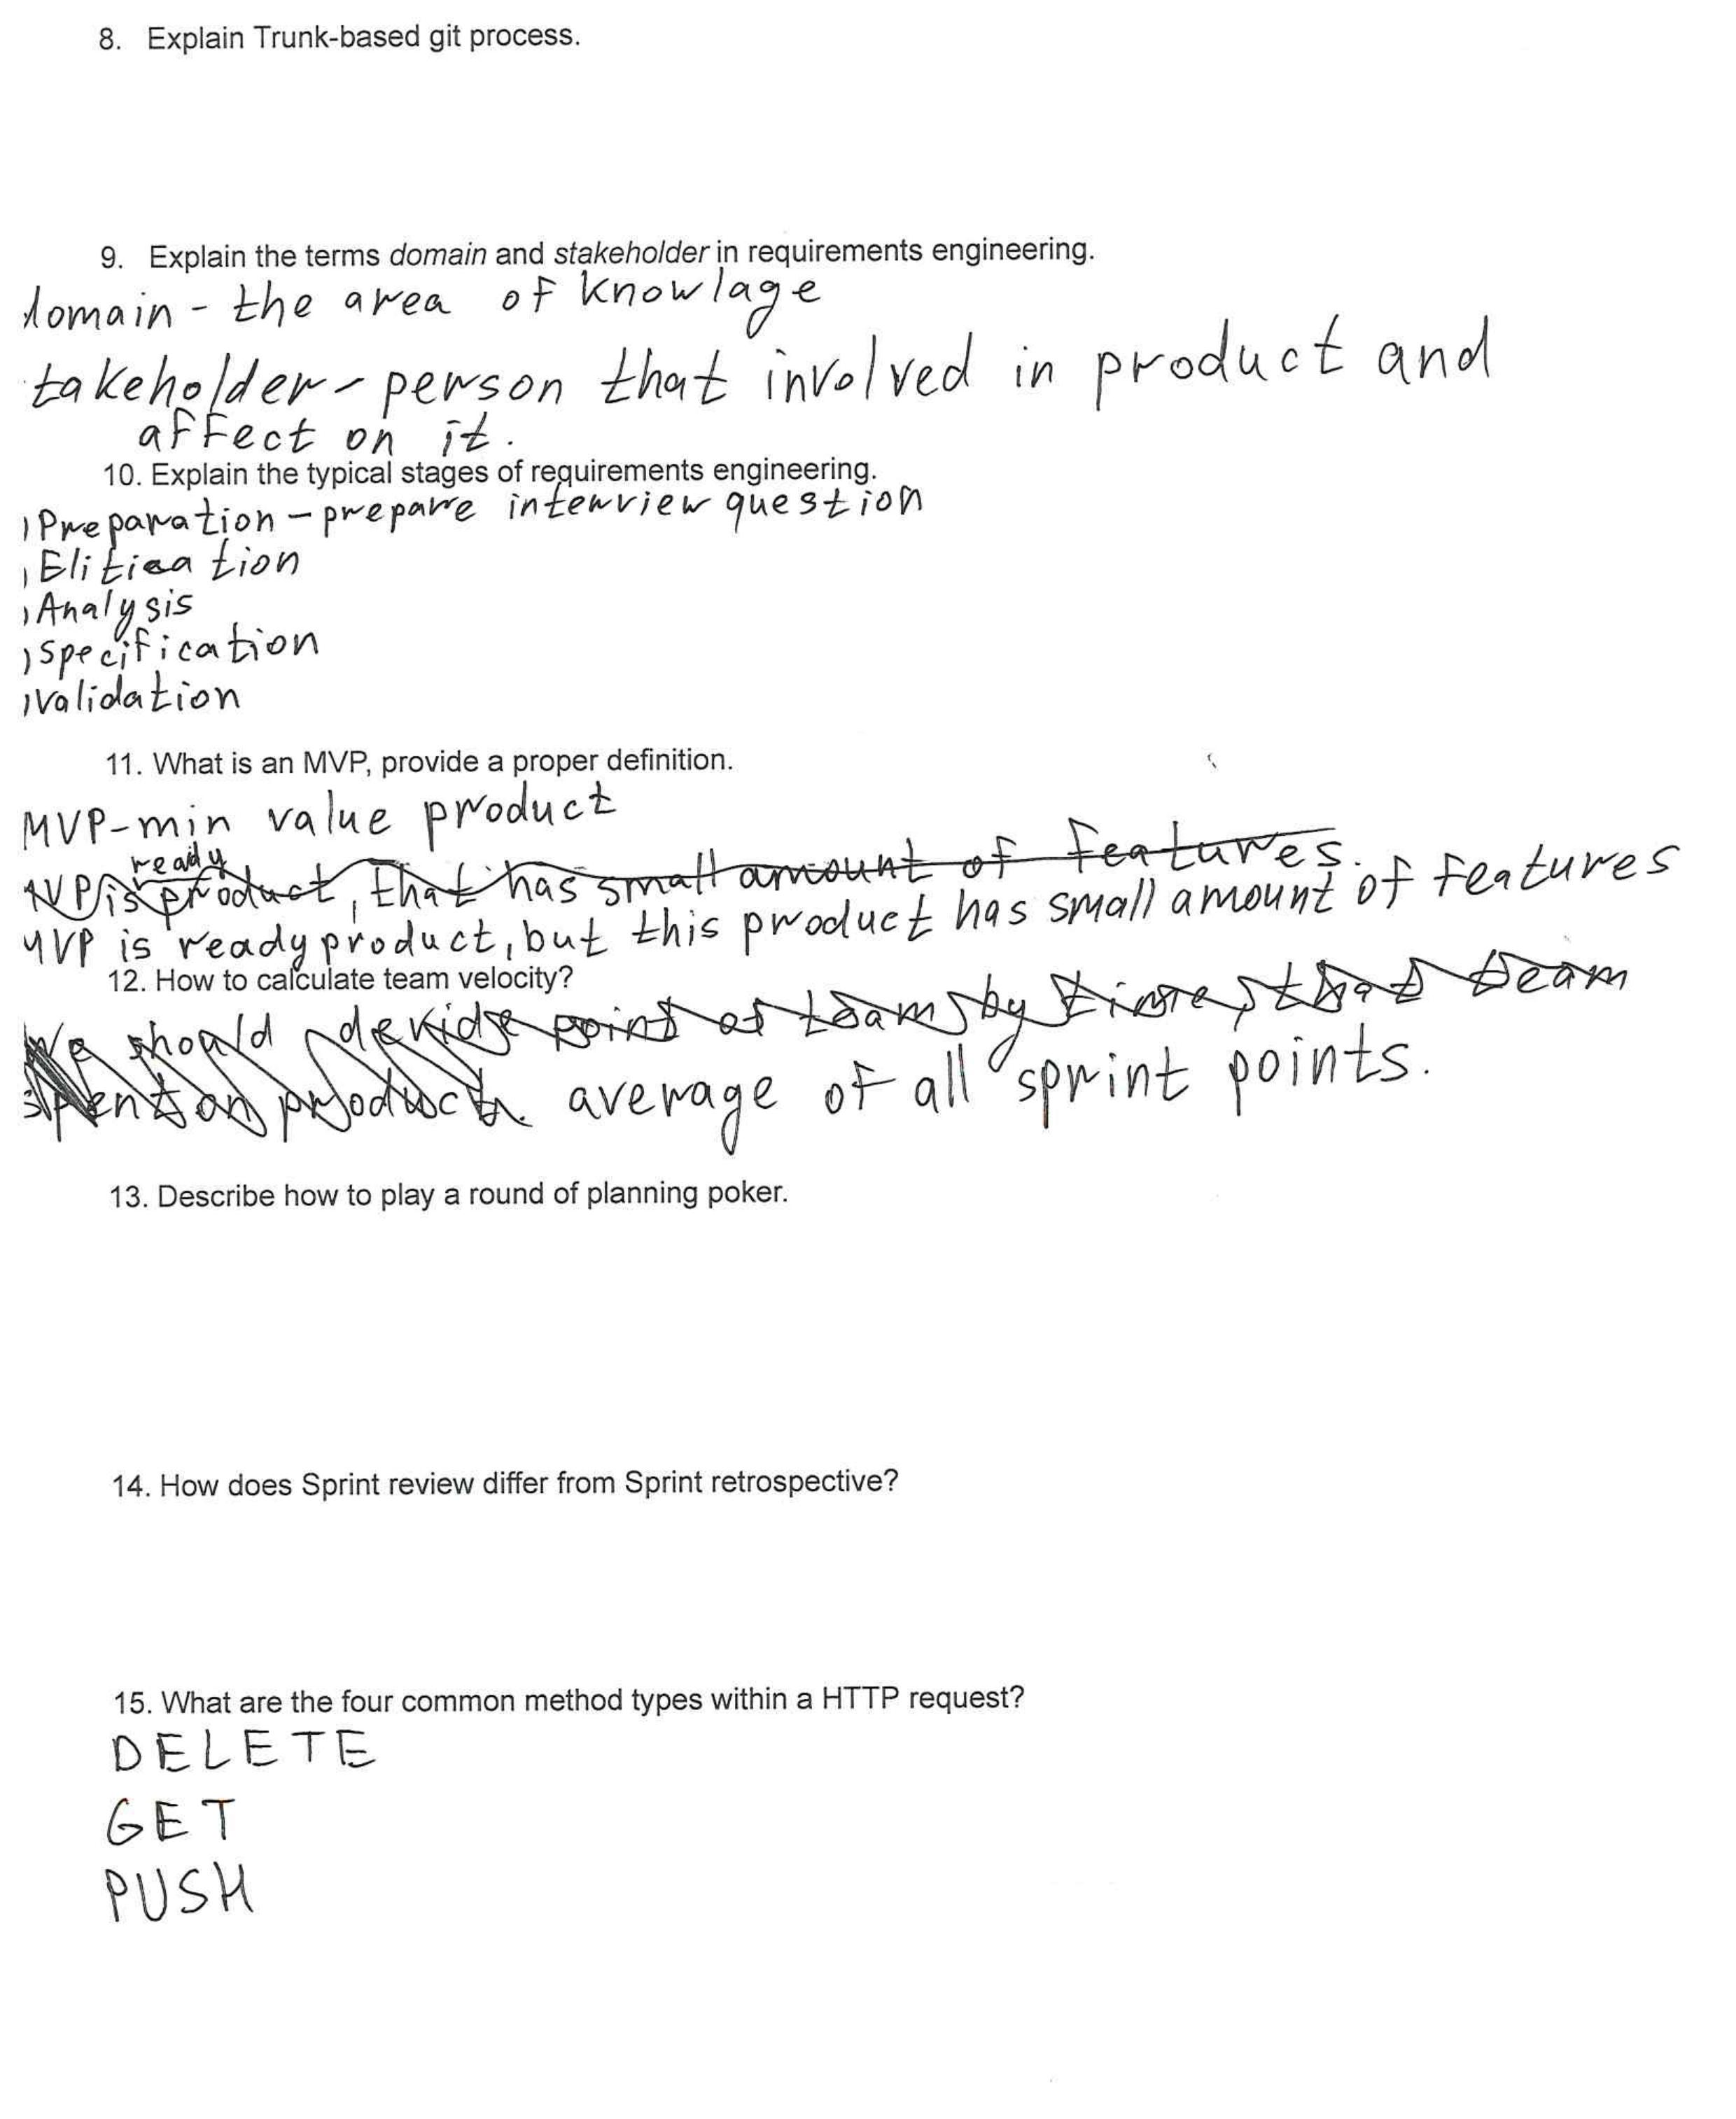 8. Explain Trunk-based git process.
9. Explain the terms domain and stakeholder in requirements engineering.
domain - the area of knowlage
takeholder - person that involved in product and
affect on it.
10. Explain the typical stages of requirements engineering.
) Preparation - prepare interview question
) Elitication
) Analysis
) specification
) validation
11. What is an MVP, provide a proper definition.
MVP - min value product
ready
MVP is product, that has small amount of features.
MVP is ready product, but this product has small amount of features
12. How to calculate team velocity?
We should devide point of team by time, that team
spent on product. average of all sprint points.
13. Describe how to play a round of planning poker.
14. How does Sprint review differ from Sprint retrospective?
15. What are the four common method types within a HTTP request?
DELETE
GET
PUSH